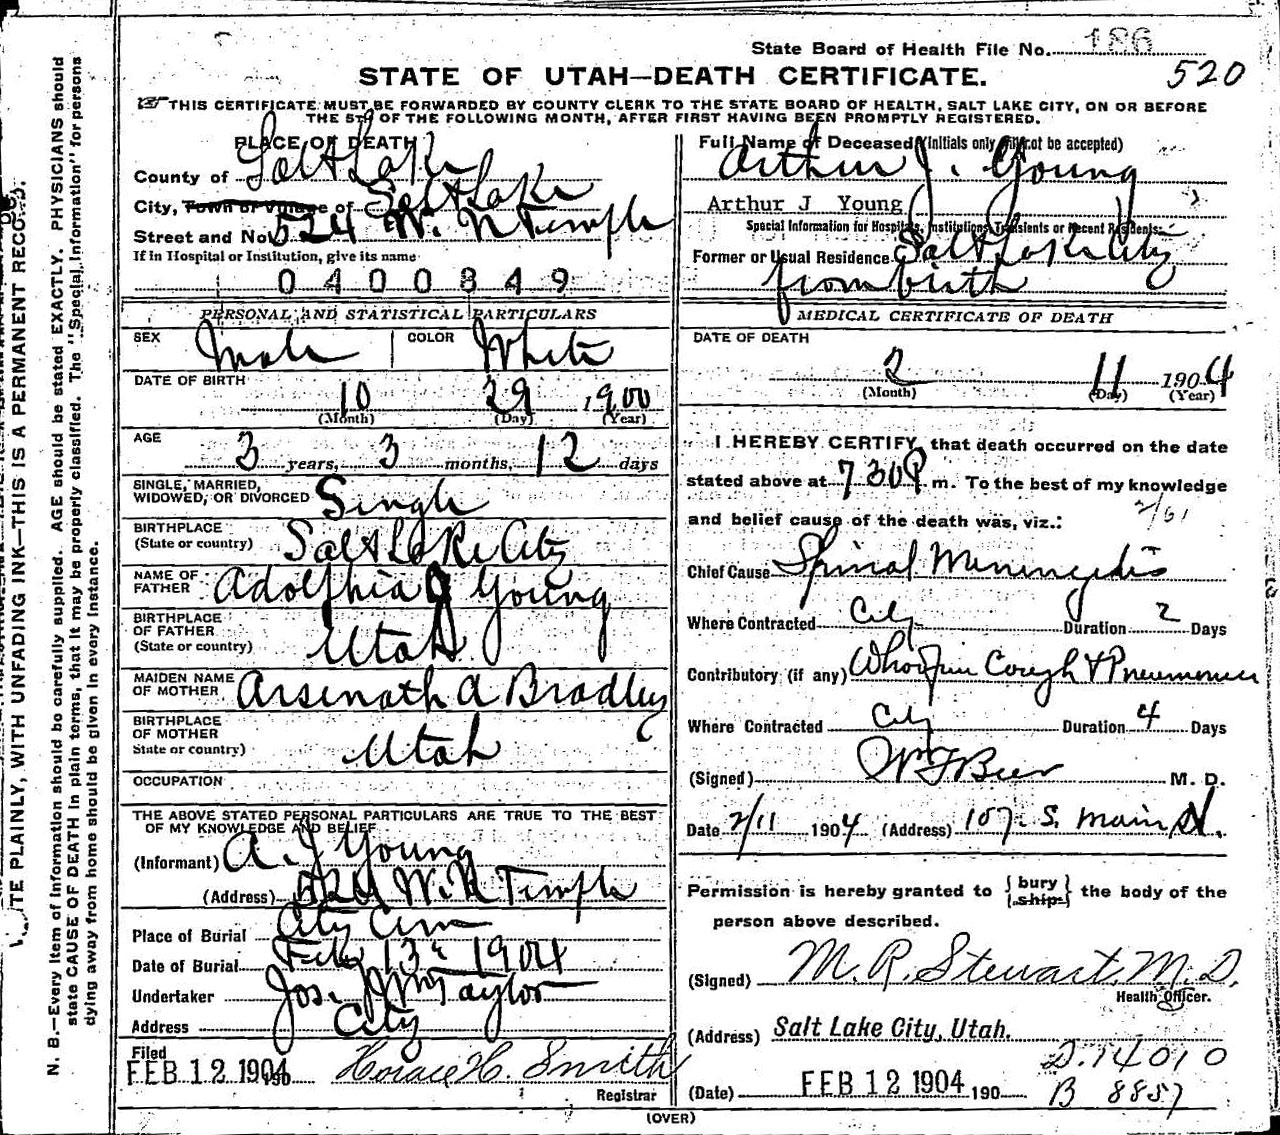 State Board of Health File No. 186
520
STATE OF UTAH—DEATH CERTIFICATE.
THIS CERTIFICATE MUST BE FORWARDED BY COUNTY CLERK TO THE STATE BOARD OF HEALTH, SALT LAKE CITY, ON OR BEFORE
THE 5TH OF THE FOLLOWING MONTH, AFTER FIRST HAVING BEEN PROMPTLY REGISTERED.
PLACE OF DEATH
County of Salt Lake
City, Town or Village of Salt Lake
Street and No. 524 W. N Temple
If in Hospital or Institution, give its name
0 4 0 0 8 4 9
Full Name of Deceased (Initials only will not be accepted)
Arthur J. Young
Arthur J Young
Special Information for Hospitals, Institutions, Transients or Recent Residents:
Former or Usual Residence Salt Lake City
from birth
PERSONAL AND STATISTICAL PARTICULARS
SEX Male COLOR White
DATE OF BIRTH
10 29 1900
(Month) (Day) (Year)
AGE
3 years, 3 months, 12 days
SINGLE, MARRIED,
WIDOWED, OR DIVORCED Single
BIRTHPLACE
(State or country) Salt Lake City
NAME OF
FATHER Adolphia J Young
BIRTHPLACE
OF FATHER
(State or country) Utah
MAIDEN NAME
OF MOTHER Arsenath A Bradley
BIRTHPLACE
OF MOTHER
State or country) Utah
OCCUPATION
THE ABOVE STATED PERSONAL PARTICULARS ARE TRUE TO THE BEST
OF MY KNOWLEDGE AND BELIEF
(Informant) A. J Young
(Address) 524 W. N Temple
Place of Burial City Cem
Date of Burial Feb 13 1904
Undertaker Jos. Wm Taylor
Address City
Filed
FEB 12 1904 190
Horace H. Smith
Registrar
MEDICAL CERTIFICATE OF DEATH
DATE OF DEATH
2 11 1904
(Month) (Day) (Year)
I HEREBY CERTIFY, that death occurred on the date
stated above at 7 30 P m. To the best of my knowledge
and belief cause of the death was, viz.:
2/61
Chief Cause Spinal Meningitis
Where Contracted City Duration 2 Days
Contributory (if any) Whoopin Cough & Pneumonia
Where Contracted City Duration 4 Days
(Signed) W F Beer M. D.
Date 2/11 1904 (Address) 107 S. Main St.
Permission is hereby granted to {bury ship} the body of the
person above described.
(Signed) M. R. Stewart, M.D.
Health Officer.
(Address) Salt Lake City, Utah.
D. 14010
(Date) FEB 12 1904 190
B 8857
(OVER)
WRITE PLAINLY, WITH UNFADING INK—THIS IS A PERMANENT RECORD.
N. B.—Every item of information should be carefully supplied. AGE should be stated EXACTLY. PHYSICIANS should
state CAUSE OF DEATH in plain terms, that it may be properly classified. The "Special Information" for persons
dying away from home should be given in every instance.